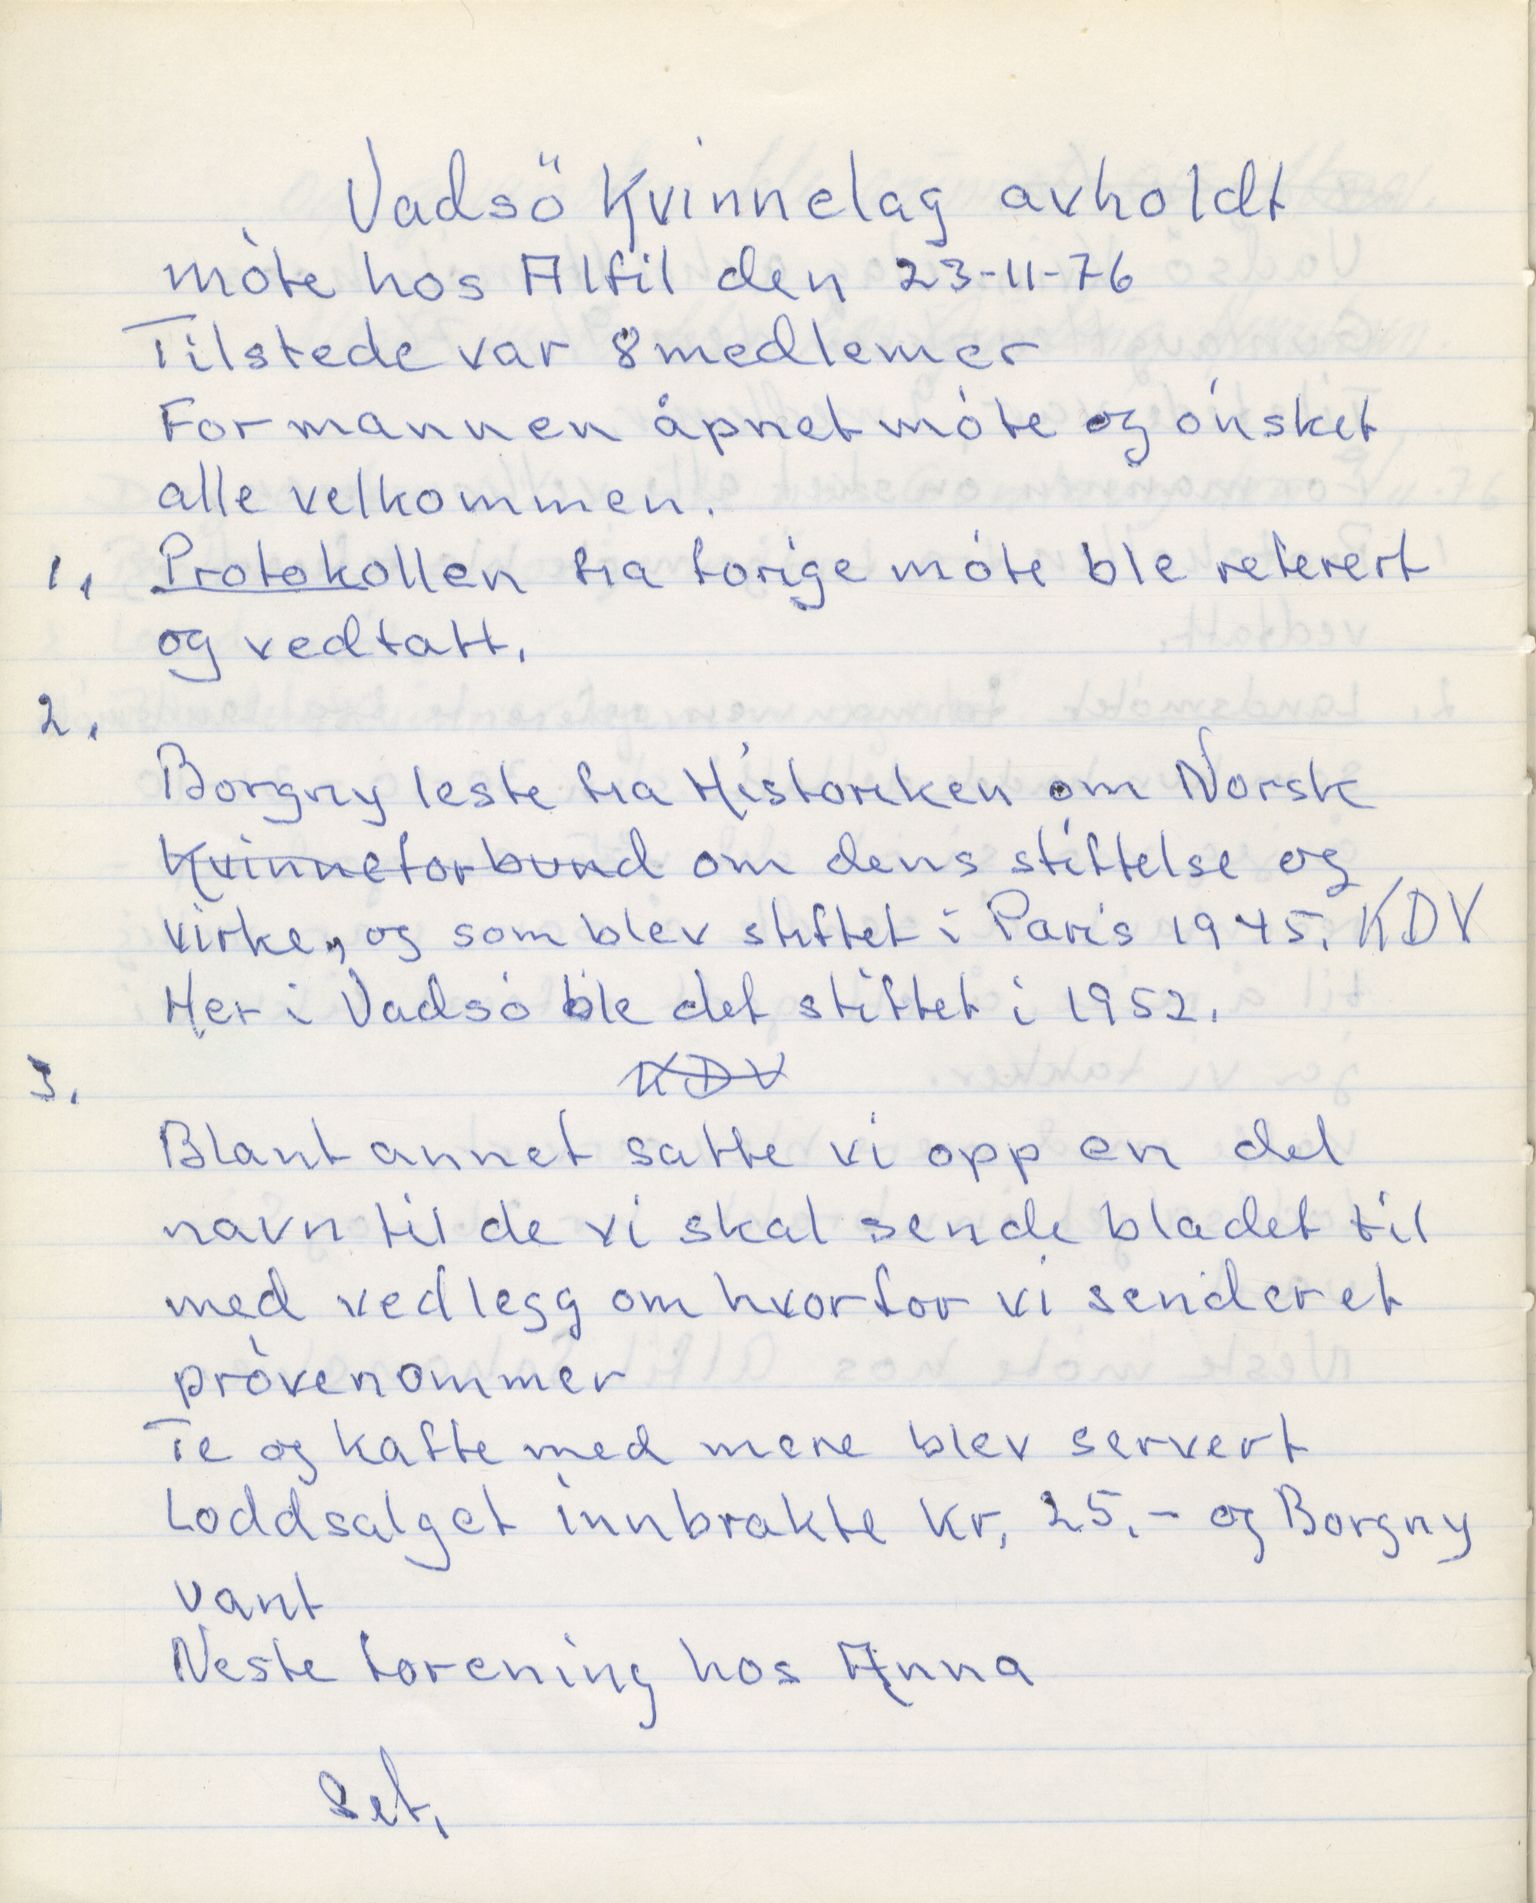 Vadsö Kvinnelag avholdt
møte hos Alfil den 23-11-76
Tilstede var 8 medlemer
Formannen åpnet møte og ønsket
alle velkommen.
1. Protokollen fra forige møte ble referert
og vedtatt.
2.
Borgny leste fra Historiken om Norsk
Kvinneforbund om dens stiftelse og
virke, og som blev stiftet i Paris 1945. KDV
Her i Vadsø ble det stiftet i 1952.
3. KDV
Blant annet satte vi opp en del
navn til de vi skal sende bladet til
med vedlegg om hvorfor vi sender et
prøvenommer
Te og kaffe med mere blev servert
Loddsalget innbrakte kr. 25.- og Borgny
vant
Neste forening hos Anna